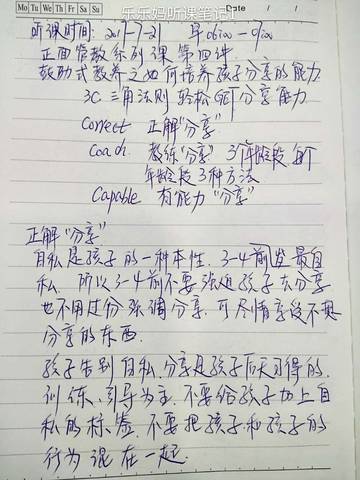 乐乐妈听课笔记1
Mo Tu We Th Fr Sa Su
Date
听课时间: 2017-7-21 早06:00-07:00
正面管教系列课 第四讲
鼓励式教养之如何培养孩子分享的能力
3C 三角法则 轻松get分享能力
Correct 正解“分享”
Coach 教练“分享” 3个年龄段 每个
年龄段3种方法
Capable 有能力“分享”
正解“分享”
自私是孩子的一种本性. 3-4前是最自
私. 所以3-4前不要强迫孩子去分享
也不用过分强调分享. 可尽情享受不想
分享的东西.
孩子告别自私,分享是孩子后天习得的.
训练、引导为主. 不要给孩子加上自
私的标签. 不要把孩子和孩子的
行为混在一起.